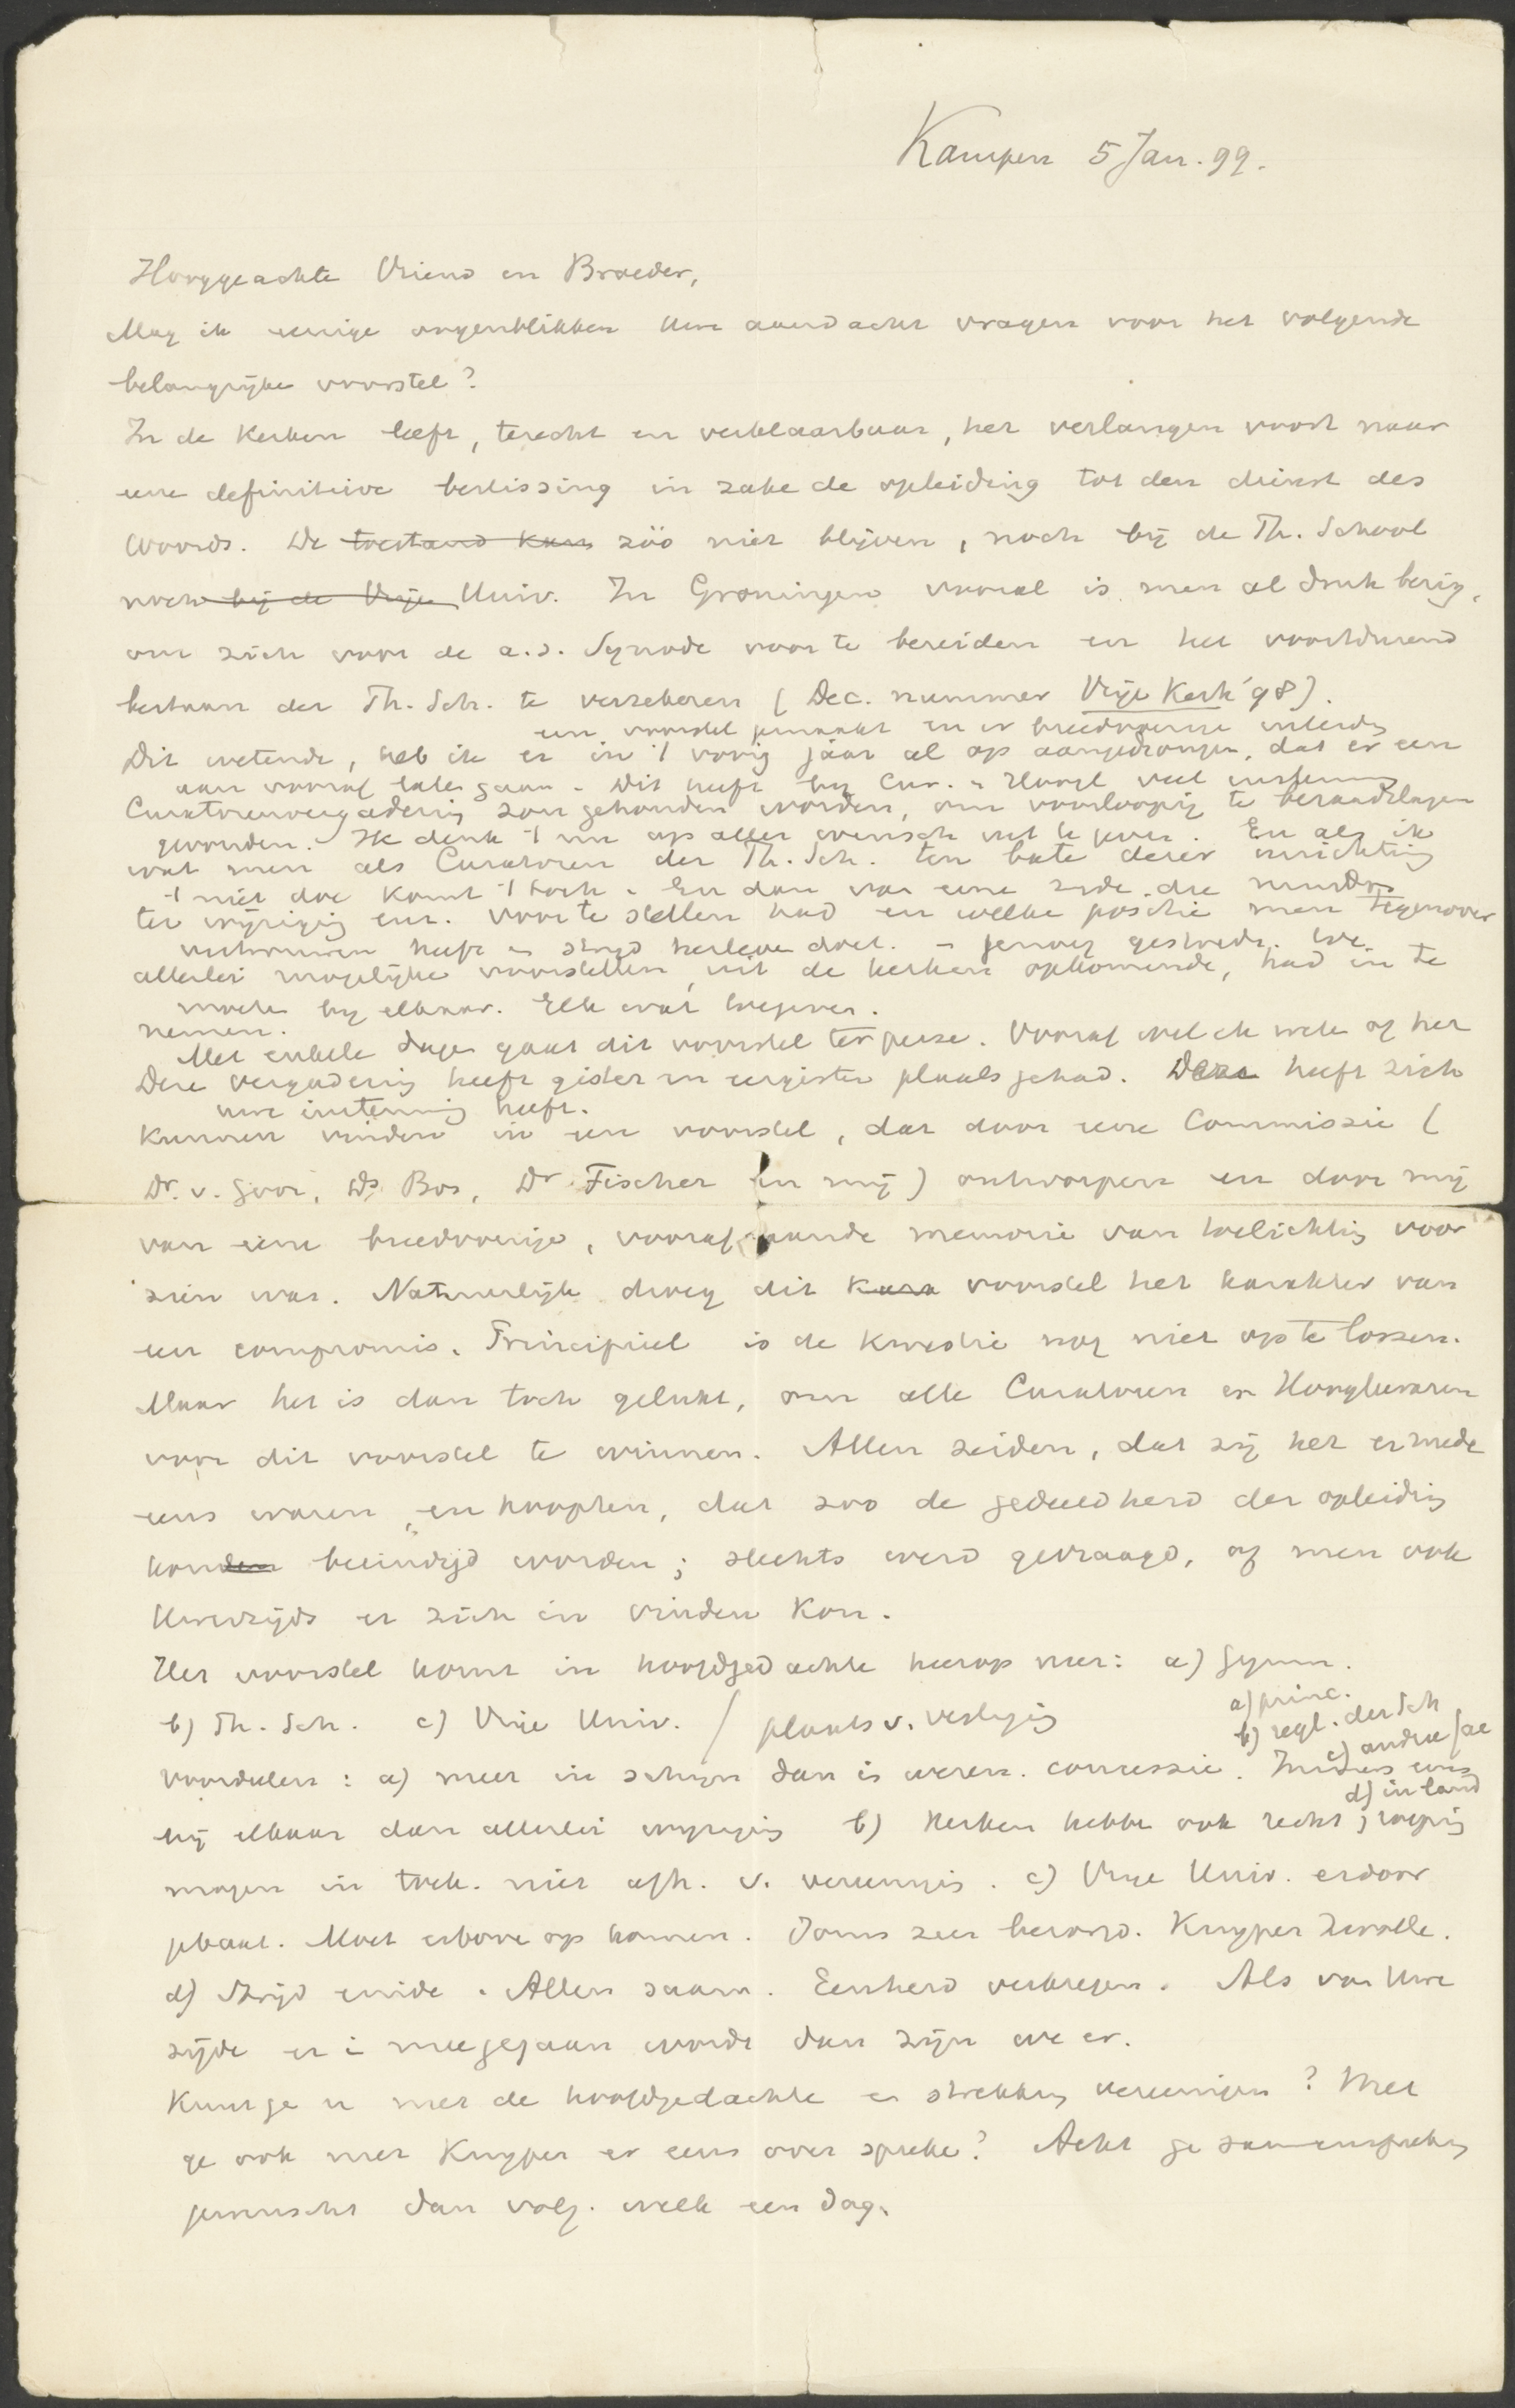 Kampen 5 Jan. 99.
Hooggeachte Vriend en Broeder,
Mag ik eenige oogenblikken Uwe aandacht vragen voor het volgende
belangrijke voorstel?
In de Kerken leeft, terecht en verklaarbaar, het verlangen voort naar
eene definitieve beslissing in zake de opleiding tot den dienst des
Woords. De toestand kan zóó niet blijven, noch bij de Th. School
noch bij de Vrije Univ. In Groningen vooral is men al druk bezig,
om zich voor de a.s. Synode voor te bereiden en het voortdurend
bestaan der Th. Sch. te verzekeren (Dec. nummer Vrije Kerk '98).
een voorstel gemaakt en er breedvoerige inleiding
Dit wetende, heb ik er in 't vorig jaar al op aangedrongen, dat er een
aan vooraf laten gaan. Dit heeft bij Cur. en Hoogl. veel instemming
Curatorenvergadering zou gehouden worden, om voorloopig te beraadslagen
gevonden. Ik denk 't nu op aller wensch uit te geven. En als ik
wat men als Curatoren der Th. Sch. ten bate dezer inrichting
't niet doe komt 't toch. En dan van eene zijde, die minder
ter wijziging enz. voor te stellen had en welke positie men tegenover
vertrouwen heeft en strijd herleven doet. genoeg gestreden. We
allerlei mogelijke voorstellen, uit de kerken opkomende, had in te
moeten bij elkaar. Elk wat toegeven.
nemen.
Met enkele dagen gaat dit voorstel ter perse. Vooraf wilde ik weten of het
Deze vergadering heeft gister en eergister plaats gehad. Deze heeft zich
uwe instemming heeft.
kunnen vinden in een voorstel, dat door eene Commissie (
Dr. v. Goor, Ds Bos, Dr Fischer en mij) ontworpen en door mij
van eene breedvoerige, voorafgaande memorie van toelichting voor
zien was. Natuurlijk droeg dit voorstel het karakter van
een compromis. Principieel is de kwestie nog niet op te lossen.
Maar het is dan toch gelukt, om alle Curatoren en Hoogleeraren
voor dit voorstel te winnen. Allen zeiden, dat zij het er mede
eens waren en hoopten, dat zoo de gedeeldheid der opleiding
konden beëindigd worden; slechts werd gevraagd, of men ook
Uwerzijds er zich in vinden kon.
Het voorstel komt in hoofdgedachte hierop neer: a) Gymn.
b) Th. Sch. c) Vrije Univ. / plaats v. vestiging
a) princ.
b) regl. der Sch
c) andere fac
d) in land
voordeelen: a) meer in schijn dan in wezen. concessie. Indien eens
bij elkaar dan allerlei wijziging b) Kerken hebben ook recht; roeping
mogen in toek. niet afh. v. vereenigin. c) Vrije Univ. erdoor
gebaat. Moet erboven op komen. Soms zeer bezorgd. Kuyper Zwolle.
d) Strijd einde. Allen saam. Eenheid verkregen. Als van Uwe
zijde er in meegegaan wordt dan zijn we er.
Kunt ge u met de hoofdgedachte en strekking vereenigen? Met
ge ook met Kuyper er eens over spreken? Acht ge samenspreking
gewenscht dan volg. week een dag.